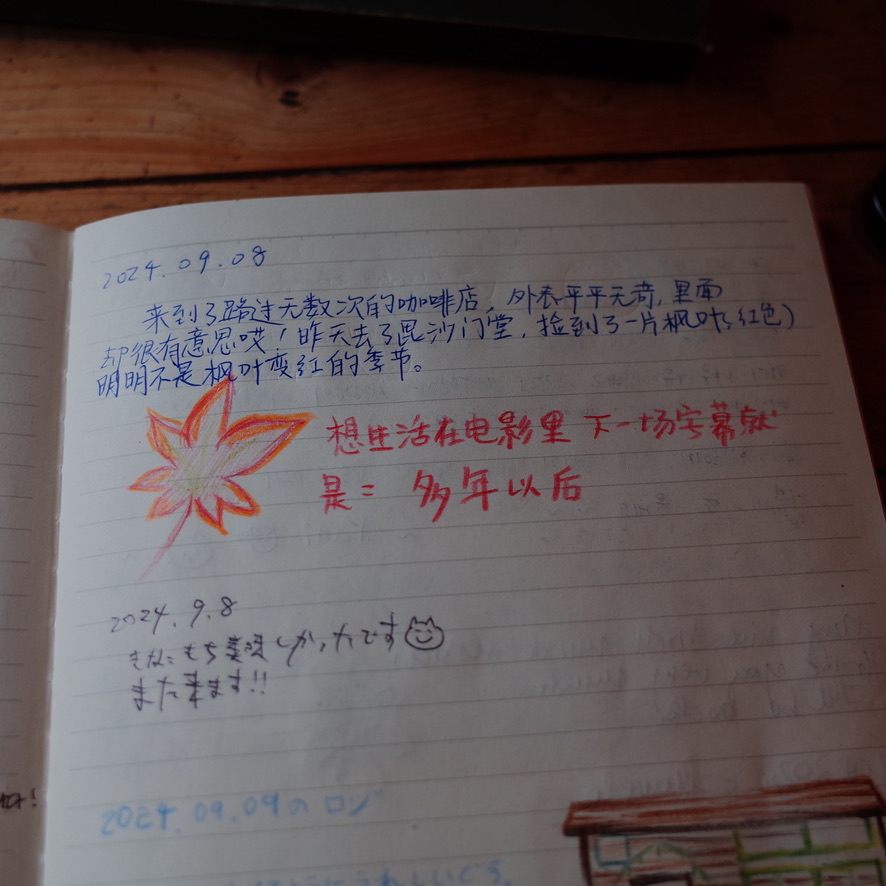 2024.09.08
来到了路过无数次的咖啡店，外表平平无奇，里面
却很有意思哎！昨天去了毘沙门堂，捡到了一片枫叶（红色）
明明不是枫叶变红的季节。
想生活在电影里 下一场字幕就
是= 多年以后
2024.9.8
きなこもち美味しかったです
また来ます!!
2024.09.09の ロジ
うれしいです。